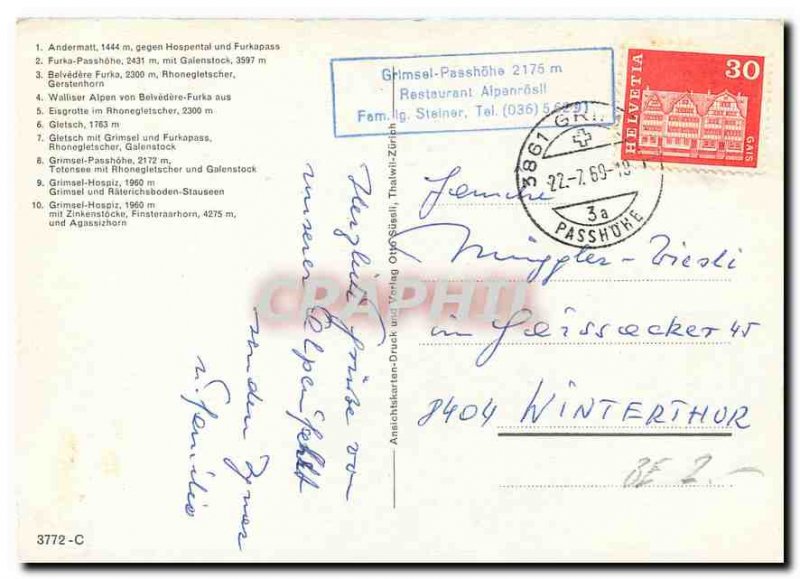 1. Andermatt, 1444 m, gegen Hospental und Furkapass
2. Furka-Passhöhe, 2431 m, mit Galenstock, 3597 m
3. Belvédère Furka, 2300 m, Rhonegletscher,
Gerstenhorn
4. Walliser Alpen von Belvédère-Furka aus
5. Eisgrotte im Rhonegletscher, 2300 m
6. Gletsch, 1763 m
7. Gletsch mit Grimsel und Furkapass,
Rhonegletscher, Galenstock
8. Grimsel-Passhöhe, 2172 m,
Totensee mit Rhonegletscher und Galenstock
9. Grimsel-Hospiz, 1960 m
Grimsel und Räterichsboden-Stauseen
10. Grimsel-Hospiz, 1960 m
mit Zinkenstöcke, Finsteraarhorn, 4275 m,
und Agassizhorn
Grimsel-Passhöhe 2176 m
Restaurant Alpenrösli
Fam. Ig. Steiner, Tel. (036) 5 62 91
HELVETIA
30
GAIS
3861 GRIM
22.-7.69-19
3a
PASSHÖHE
Herzliche Grüsse von
unserer Alpenfahrt
senden
u. Familie
Ansichtskarten-Druck und Verlag Otto Süssli, Thalwil-Zürich
Familie
Müggler-Züesli
im Geissacker 45
8404 WINTERTHUR
BE 2.-
CRAPHIL
3772-C